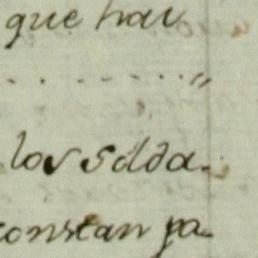 que hai
. . . . . . . . . "
los solda-
constan pa-